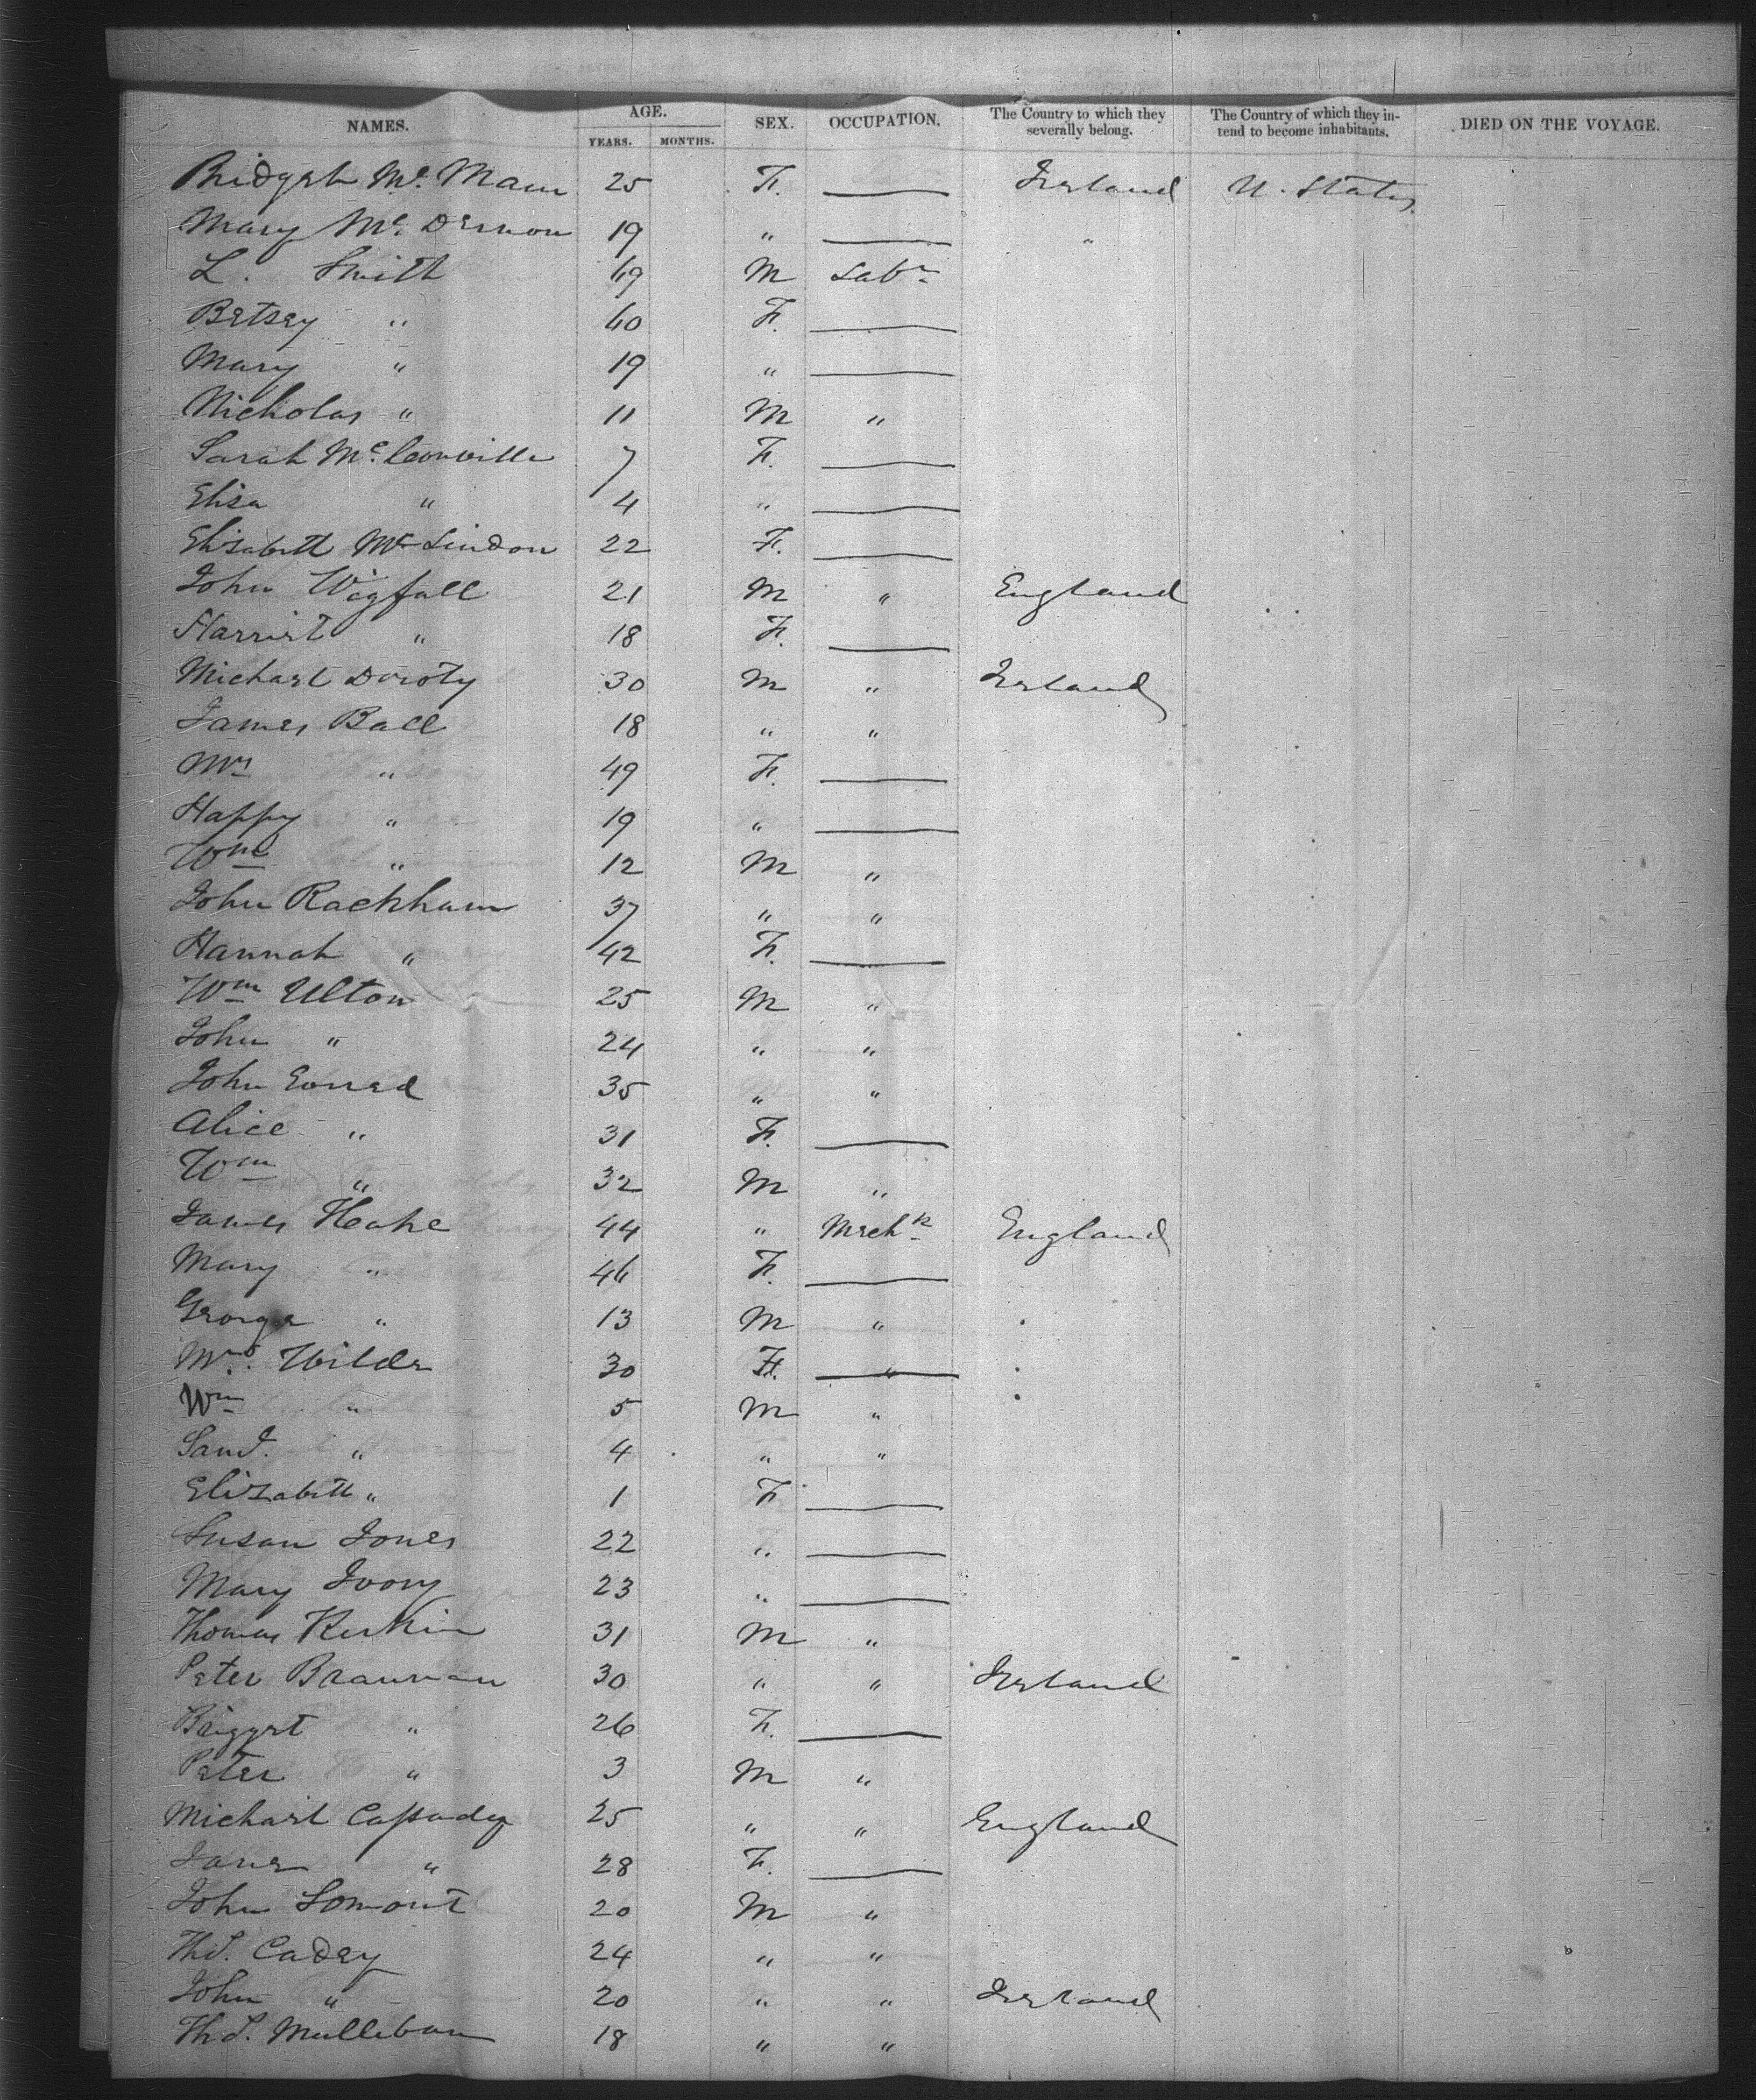 NAMES. AGE. YEARS. MONTHS. SEX. OCCUPATION. The Country to which they severally belong. The Country of which they intend to become inhabitants. DIED ON THE VOYAGE.
Bridget Mc. Mann 25 F. — Ireland U. States
Mary Mc. Dermon 19 " — "
L. Smith 69 M Labr
Betsey " 60 F. —
Mary " 19 " —
Nicholas " 11 M "
Sarah Mc. Conville 7 F. —
Elisa " 4 " —
Elisabeth Mc Lindon 22 F. —
John Wigfall 21 M " England
Harriet " 18 F. —
Michael Doroty 30 M " Ireland
James Ball 18 " "
Mrs " 49 F. —
Happy " 19 " —
Wm " 12 M "
John Rackham 37 " "
Hannah " 42 F. —
Wm Ulton 25 M "
John " 24 " "
John 35 " "
Alice " 31 F. —
Wm " 32 M "
James Heake 44 " Mech England
Mary " 46 F. —
George " 13 M "
Mrs. Wilde 30 F. —
Wm " 5 M "
Saml. " 4 " "
Elizabeth " 1 F —
Susan Jones 22 " —
Mary Ivory 23 " —
Thomas 31 M "
Peter Brannan 30 " " Ireland
Brigget " 26 F. —
Peter " 3 M "
Michael Cassady 25 " " England
Jane " 28 F. —
John Lomont 20 M "
Ths. Cadey 24 " "
John " 20 " " Ireland
Ths. Mulleban 18 " "